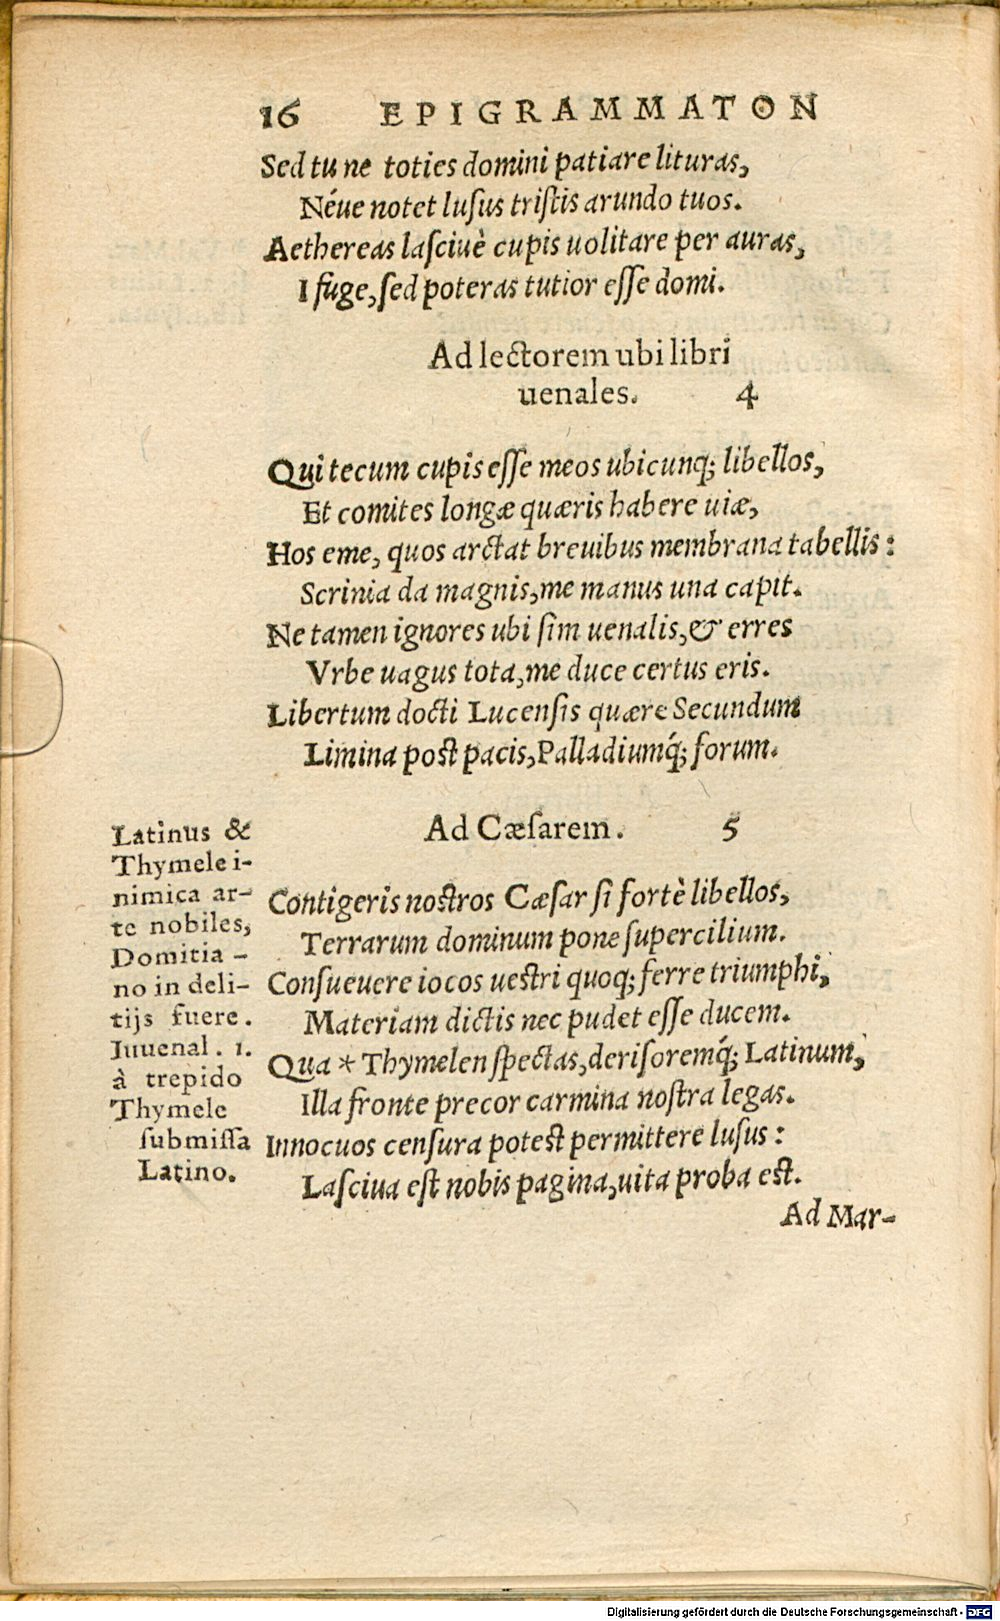 16 EPIGRAMMATON
Sed tu ne toties domini patiare lituras,
Néue notet lusus tristis arundo tuos.
Aethereas lasciuè cupis uolitare per auras,
I fuge, sed poteras tutior esse domi.
Ad lectorem ubi libri
uenales. 4
Qui tecum cupis esse meos ubicunq; libellos,
Et comites longæ quæris habere uiæ,
Hos eme, quos arctat breuibus membrana tabellis:
Scrinia da magnis, me manus una capit.
Ne tamen ignores ubi sim uenalis, & erres
Vrbe uagus tota, me duce certus eris.
Libertum docti Lucensis quære Secundum
Limina post pacis, Palladiumq́; forum.
Ad Cæsarem. 5
Contigeris nostros Cæsar si fortè libellos,
Terrarum dominum pone supercilium.
Consueuere iocos uestri quoq; ferre triumphi,
Materiam dictis nec pudet esse ducem.
Qua * Thymelen spectas, derisoremq́; Latinum,
Illa fronte precor carmina nostra legas.
Innocuos censura potest permittere lusus:
Lasciua est nobis pagina, uita proba est.
Ad Mar-
Latinus &
Thymele i-
nimica ar-
te nobiles,
Domitia-
no in deli-
tijs fuere.
Iuuenal. 1.
à trepido
Thymele
submissa
Latino.
Digitalisierung gefördert durch die Deutsche Forschungsgemeinschaft - DFG